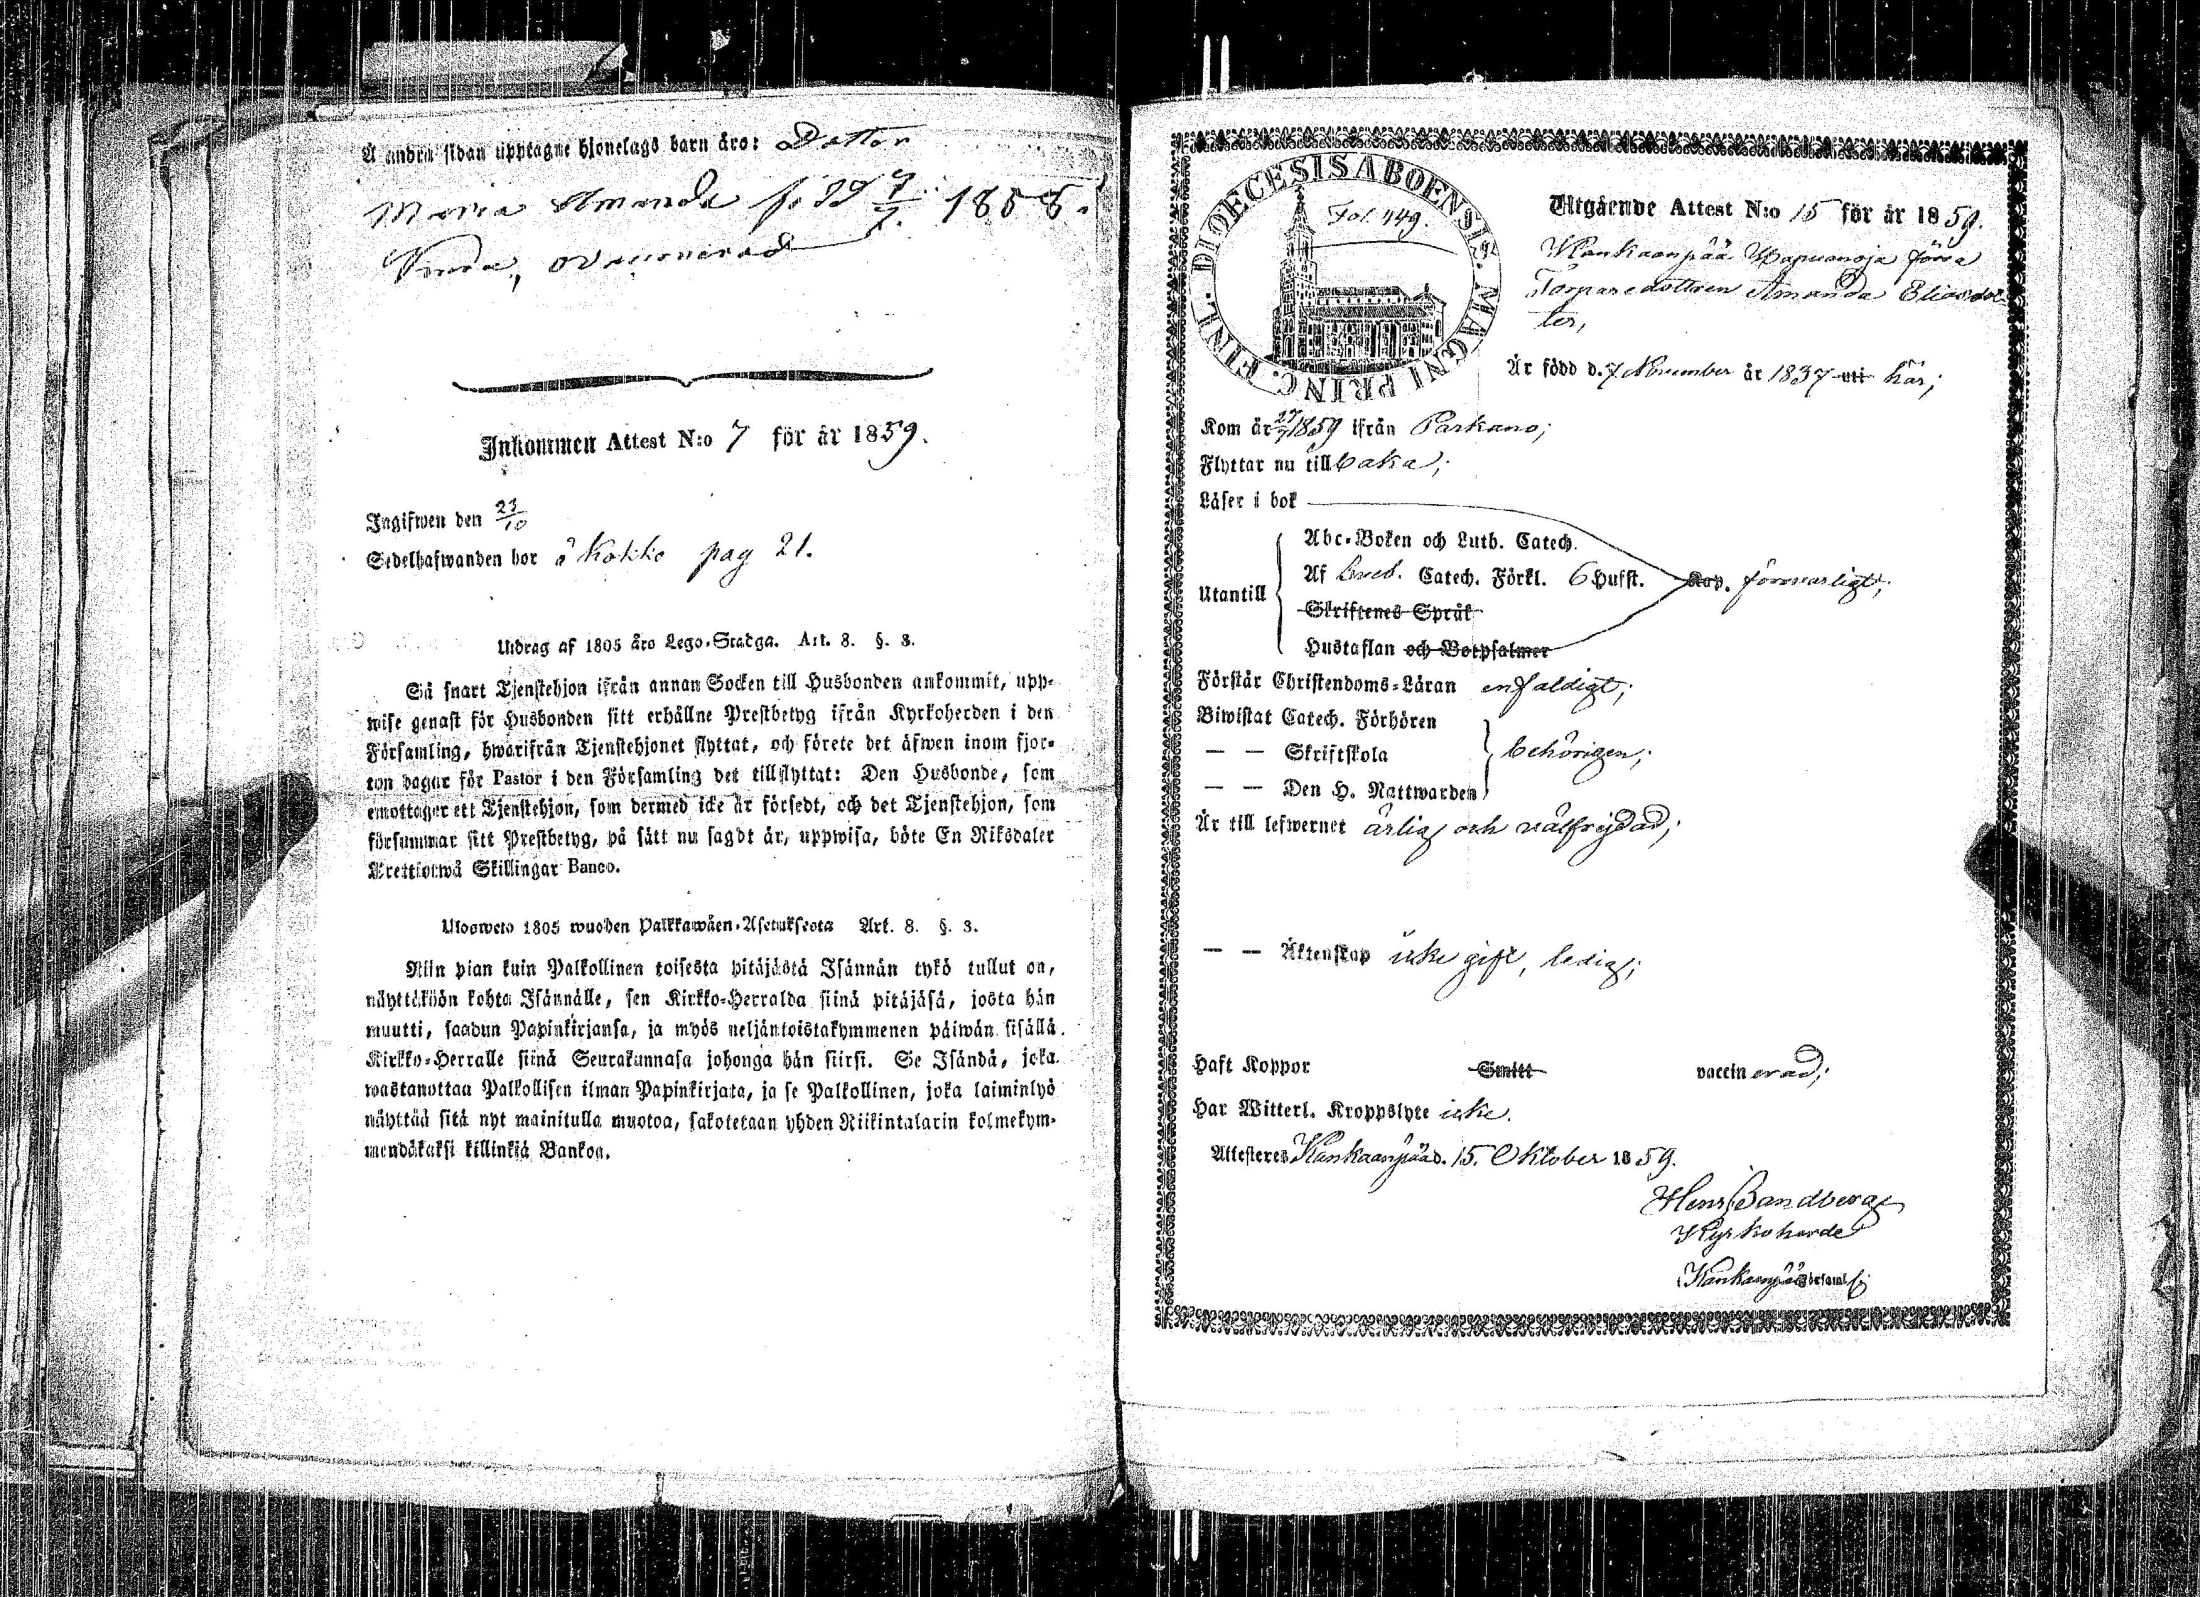 Å andra sidan upptagne hjonelags barn äro: Dotter
Maria Amanda född 7/7. 1858.
ovaccinerad
Inkommen Attest N:o 7 för år 1859.
Ingifwen den 23/10
Sedelhafwanden bor å Kokko pag 21.
Utdrag af 1805 års Lego-Stadga. Art. 8. §. 3.
Så snart Tjenstehjon ifrån annan Socken till Husbonden ankommit, upp-
wise genast för Husbonden sitt erhållne Prestbetyg ifrån Kyrkoherden i den
Församling, hwarifrån Tjenstehjonet flyttat, och förete det äfwen inom fjor-
ton dagar för Pastor i den Församling det tillflyttat: Den Husbonde, som
emottager ett Tjenstehjon, som dermed icke är försedt, och det Tjenstehjon, som
försummar sitt Prestbetyg, på sätt nu sagdt är, uppwisa, böte En Riksdaler
Trettiotwå Skillingar Banco.
Ulosweto 1805 wuoden Palkkawäen-Asetuksesta Art. 8. §. 3.
Niin pian kuin Palkollinen toisesta pitäjästä Isännän tykö tullut on,
näyttäköön kohta Isännälle, sen Kirkko-Herralda siinä pitäjäsä, josta hän
muutti, saadun Papinkirjansa, ja myös neljäntoistakymmenen päiwän sisällä
Kirkko-Herralle siinä Seurakunnasa johonga hän siirsi. Se Isändä, joka
wastanottaa Palkollisen ilman Papinkirjata, ja se Palkollinen, joka laiminlyö
näyttää sitä nyt mainitulla muotoa, sakotetaan yhden Riikintalarin kolmekym-
mendäkaksi killinkiä Bankoa.
DIOECESIS ABOENSIS. MAGNI PRINC. FINL.
Fol. 449.
Utgående Attest N:o 15 för år 1859.
Kankaanpää Wapuanoja förra
Torparedottren Amanda Eliasdot-
ter,
Är född d. 7 November år 1837 uti här;
Kom år 27/7 1859 ifrån Parkano;
Flyttar nu tillbaka;
Läser i bok
Utantill
Abc-Boken och Luth. Catech.
Af Sveb. Catech. Förkl. 6 Hufst. Kap. försvarligt;
Skriftenes Språk
Hustaflan och Botpsalmer
Förstår Christendoms-Läran enfaldigt;
Biwistat Catech. Förhören
— — Skriftskola behörigen;
— — Den H. Nattwarden
Är till lefwernet ärlig och välfrejdad;
— — Äktenskap icke gift, ledig;
Haft Koppor Smitt vaccinerad;
Har Witterl. Kroppslyte icke.
Attesteres Kankaanpää d. 15. Oktober 1859.
Henr. Sandberg
Kyrkoherde
Kankaanpää Församl.